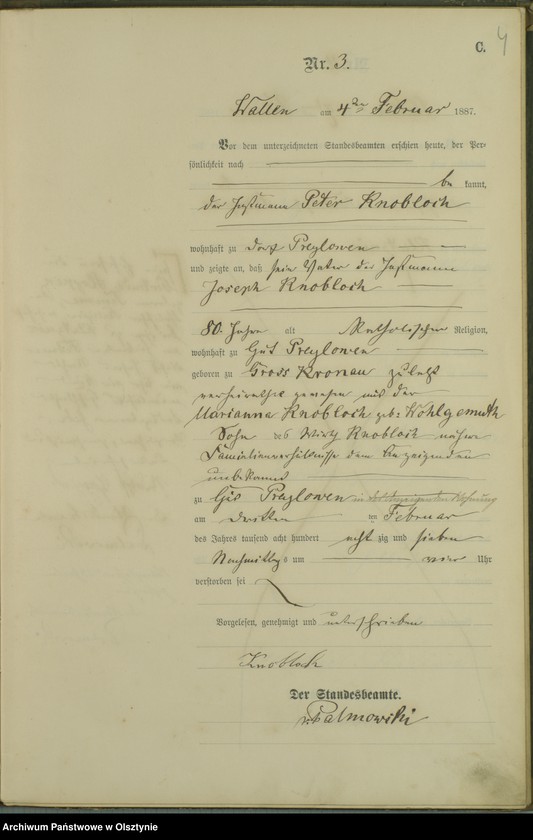 C.
4
Nr. 3.
Wallen am 4ten Februar 1887.
Vor dem unterzeichneten Standesbeamten erschien heute, der Per-
sönlichkeit nach
be kannt,
der Instmann Peter Knobloch
wohnhaft zu Dorf Preylowen
und zeigte an, daß sein Vater der Instmann
Joseph Knobloch
80 Jahre alt Katholischer Religion,
wohnhaft zu Gut Preylowen
geboren zu Gross Kronau zuletzt
verheirathet gewesen mit der
Marianna Knobloch geb: Wohlgemuth
Sohn des Wirth Knobloch nähere
Familienverhältnisse dem Anzeigenden
unbekannt
zu Preylowen in des Anzeigenden Wohnung
am dritten Februar
des Jahres tausend acht hundert acht zig und sieben
Nachmittags um vier Uhr
verstorben sei
Vorgelesen, genehmigt und unterschrieben
Knobloch
Der Standesbeamte.
v. Palmowski
Archiwum Państwowe w Olsztynie